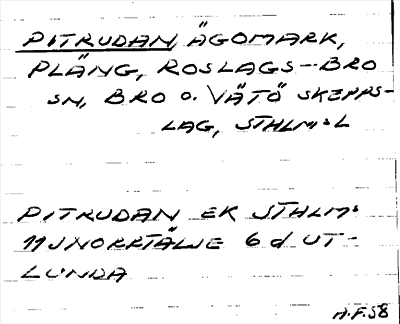 PITRUDAN, ÄGOMARK,
PLÄNG, ROSLAGS-BRO
SN, BRO o. VÄTÖ SKEPPS-
LAG, STHLMS L
PITRUDAN EK STHLM:
11JNORRTÄLJE 6d UT-
LUNDA
A.F. 58